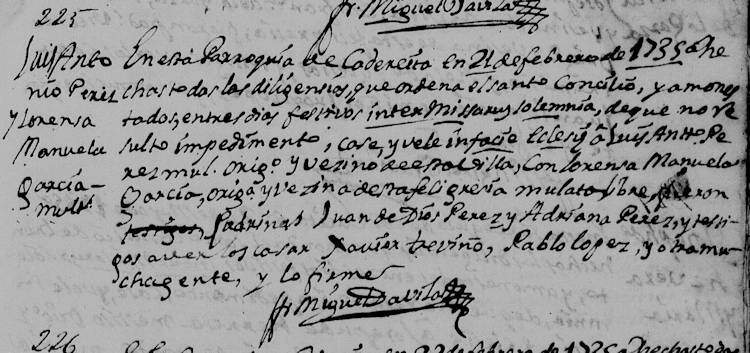 fr. Miguel Davila
225
Luis Anto
nio Perez
y Lorensa
Manuela
Garcia
mult.
En esta Parroquia de Cadereita en 21 de febrero de 1735 a he
chas todas las diligensias, que ordena el santo Concilio, y amones
tados, en tres dias festivos inter Missarum solemnia, de que no re
sulto impedimento, case, y vele in facie Eclesiæ â Luis Anto. Pe
rez mul. orig.o y vezino de esta Villa, Con Lorensa Manuela
Garcia, orig.a y vezina desta feligreria mulata libre, fueron
testigos, Padrinos Juan de Dios Perez y Adriana Perez, y testi
gos a ver los casar Xavier treviño, Pablo lopez, y otra mu
cha gente, y lo firme
fr. Miguel Davila
226
en 22 de febrero de 1735 a hechas todas